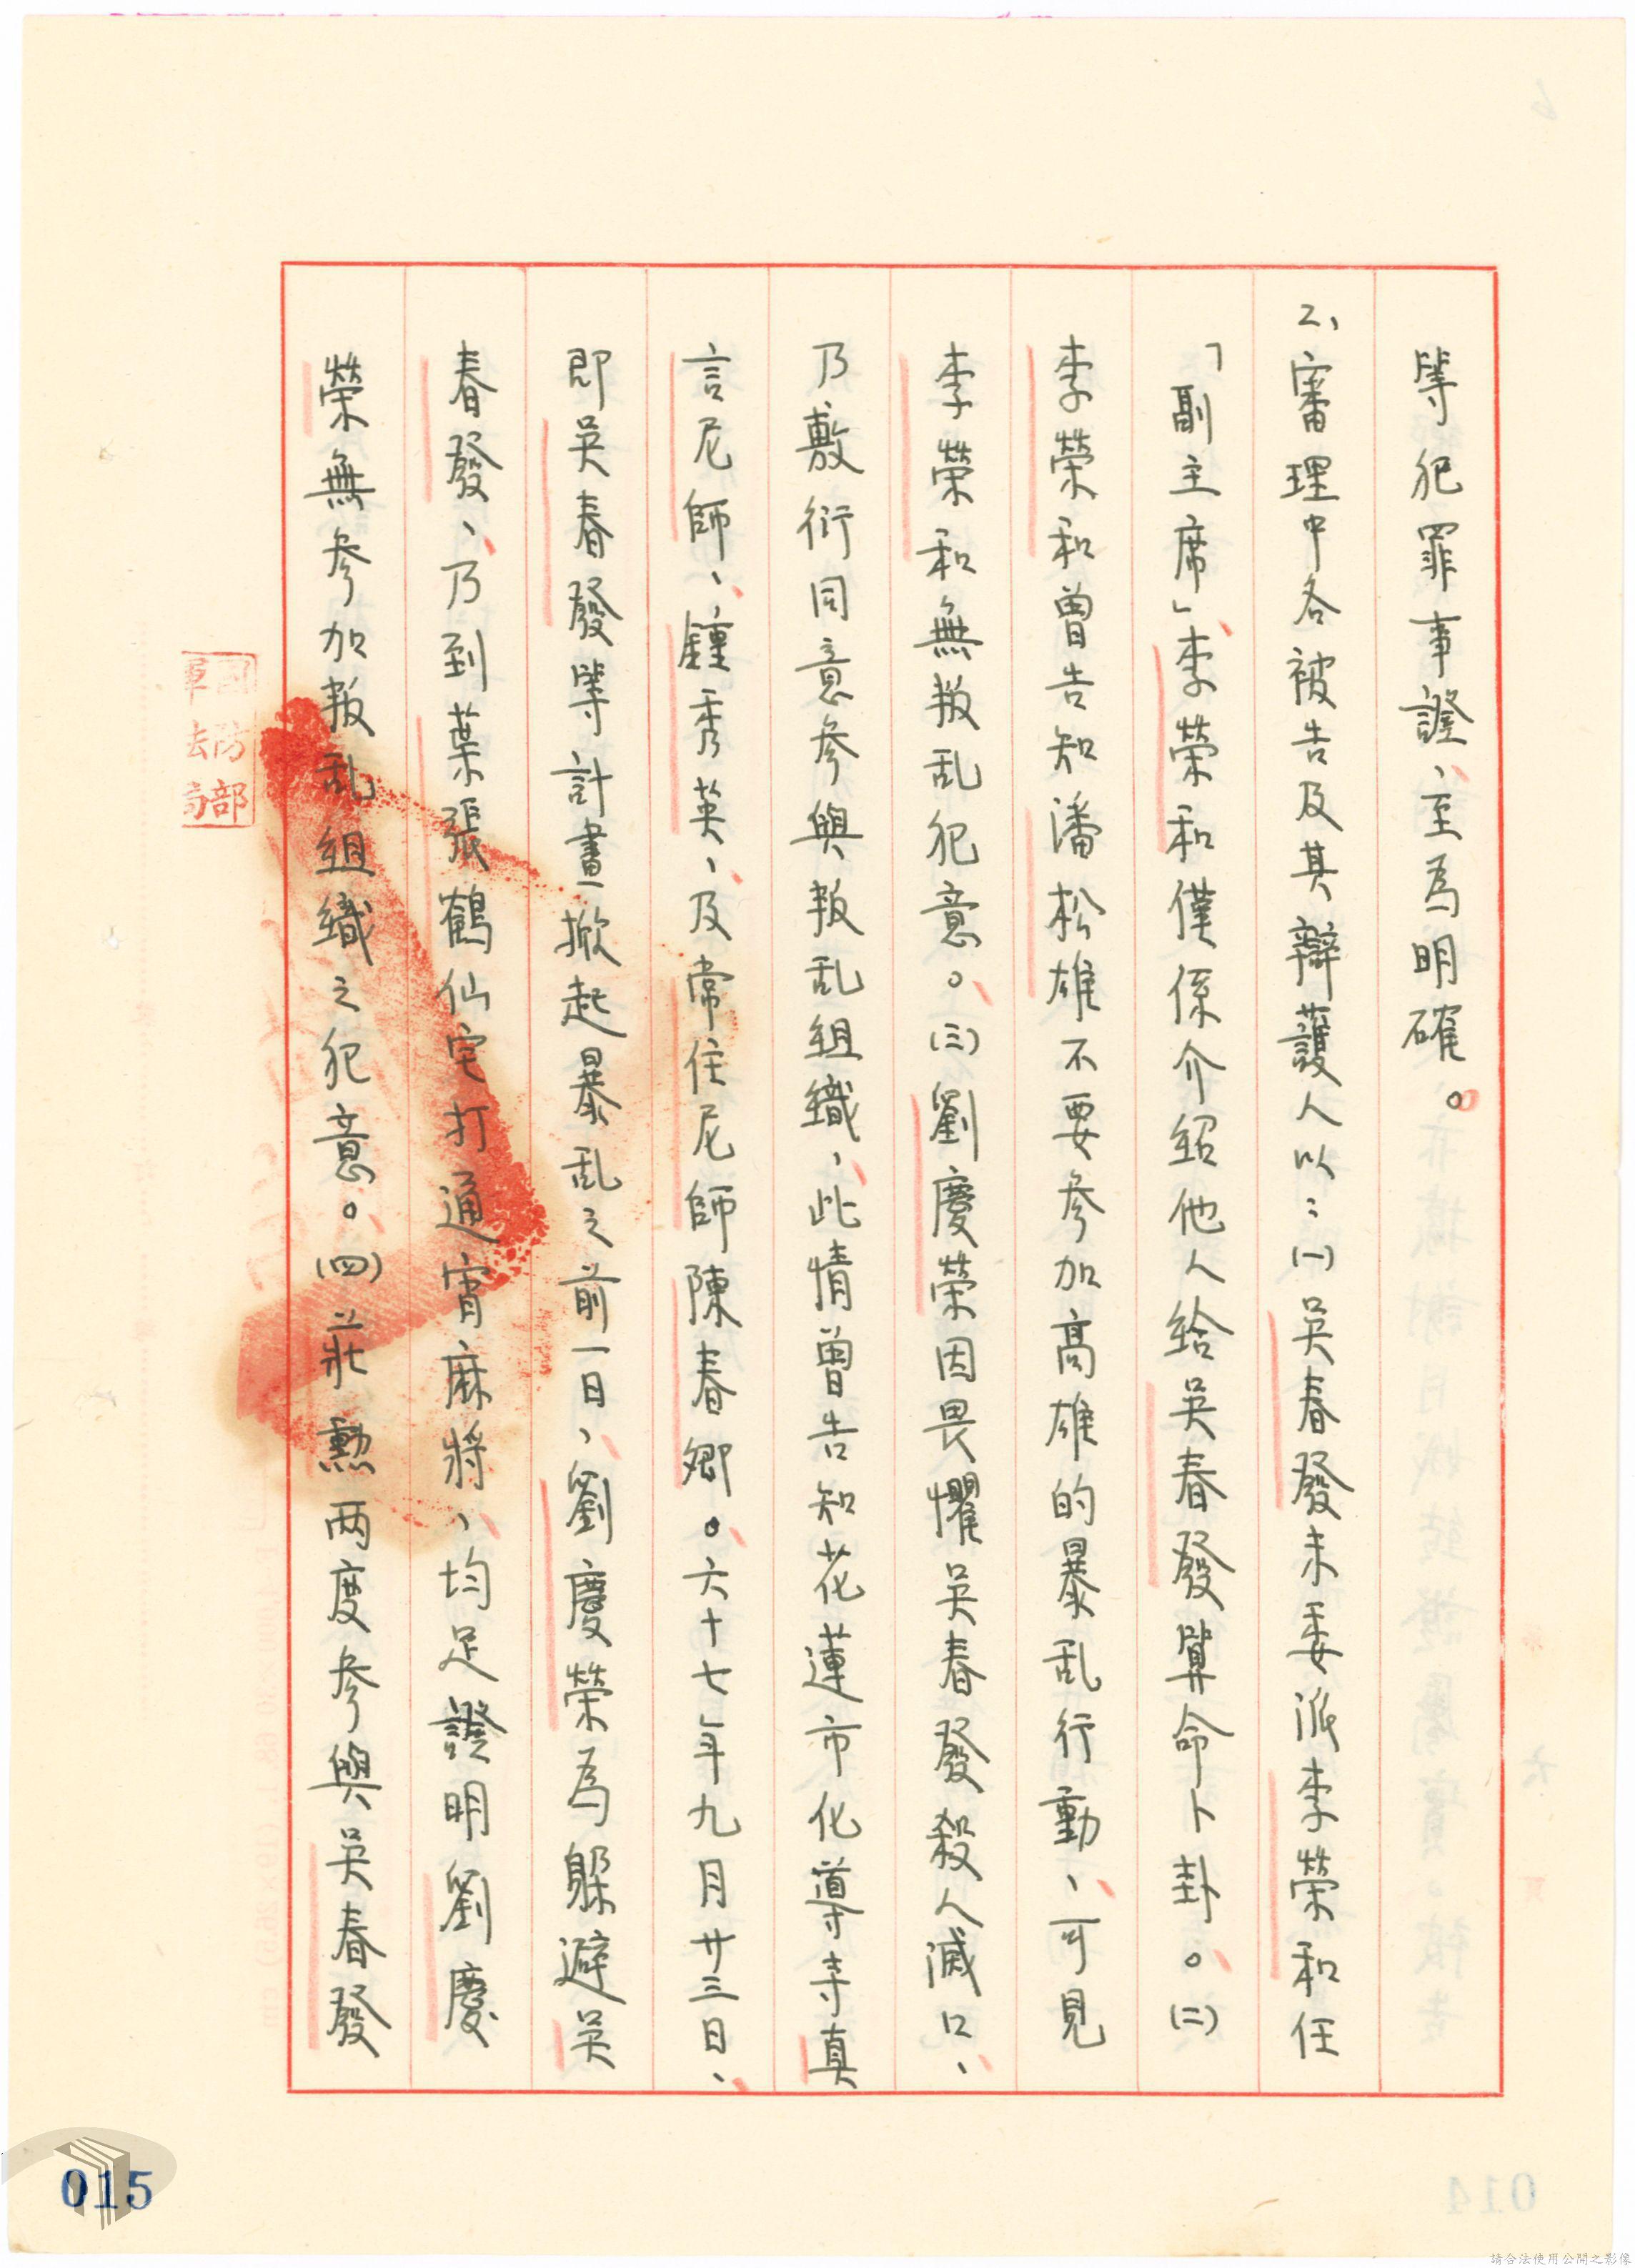 等犯罪事證、至為明確。
2、審理中各被告及其辯護人以：㈠吳春發未委派李榮和任
「副主席」李榮和僅係介紹他人給吳春發算命卜卦。㈡
李榮和曾告知潘松雄不要參加高雄的暴乱行動、可見
李榮和無叛乱犯意。㈢劉慶榮因畏懼吳春發殺人滅口、
乃敷衍同意參與叛乱組織、此情曾告知花蓮市化導寺真
言尼師、鍾秀英、及常住尼師陳春鄉。六十七年九月廿三日、
即吳春發等計畫掀起暴乱之前一日、劉慶榮為躲避吳
春發、乃到葉張鶴仙宅打通宵麻將、均足證明劉慶
榮無參加叛乱組織之犯意。㈣莊勲两度參與吳春發
國防部
軍法局
015
014
請合法使用公開之影像